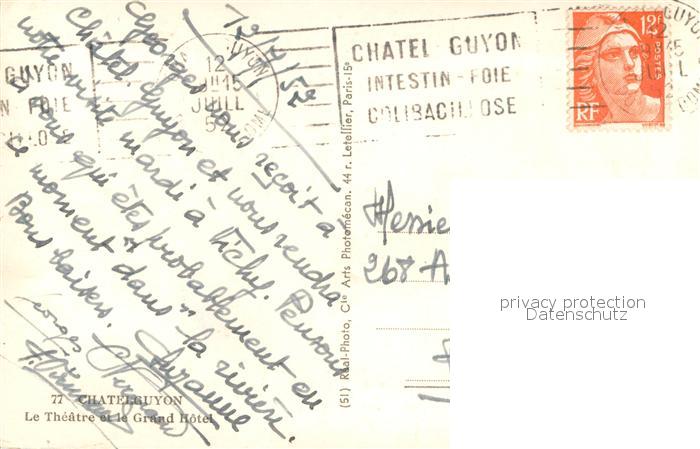 12/7/52
Georges nous reçoit à
Châtel Guyon et nous rendra
notre visite mardi à Vichy. Pensons
à vous qui êtes probablement en
ce moment "dans" la rivière.
Bons baisers. Suzanne
GUYON
N FOIE
12
JUILL
52
CHATEL GUYON
INTESTIN-FOIE
COLIBACILLOSE
GUYON
JUILL
12F
POSTES
RF
Messie
268 A
privacy protection
Datenschutz
(51) Réal-Photo, Cie Arts Photomécan. 44 r. Letellier, Paris-15e
77 CHATELGUYON
Le Théâtre et le Grand Hôtel